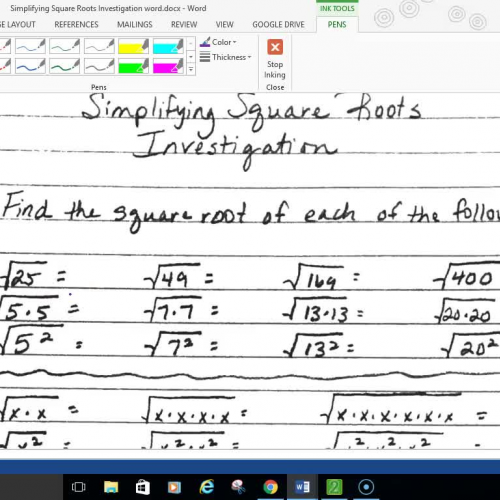 Simplifying Square Roots Investigation word.docx - Word
INK TOOLS
LAYOUT REFERENCES MAILINGS REVIEW VIEW GOOGLE DRIVE PENS
Color
Thickness
Stop Inking
Pens Close
Simplifying Square Roots
Investigation
Find the square root of each of the
√25 = √49 = √169 = √400
√5·5 = √7·7 = √13·13 = √20·20
√5² = √7² = √13² = √20²
√x·x = √x·x·x·x = √x·x·x·x·x·x =
√x² = √x²·x² = √x²·x²·x² =